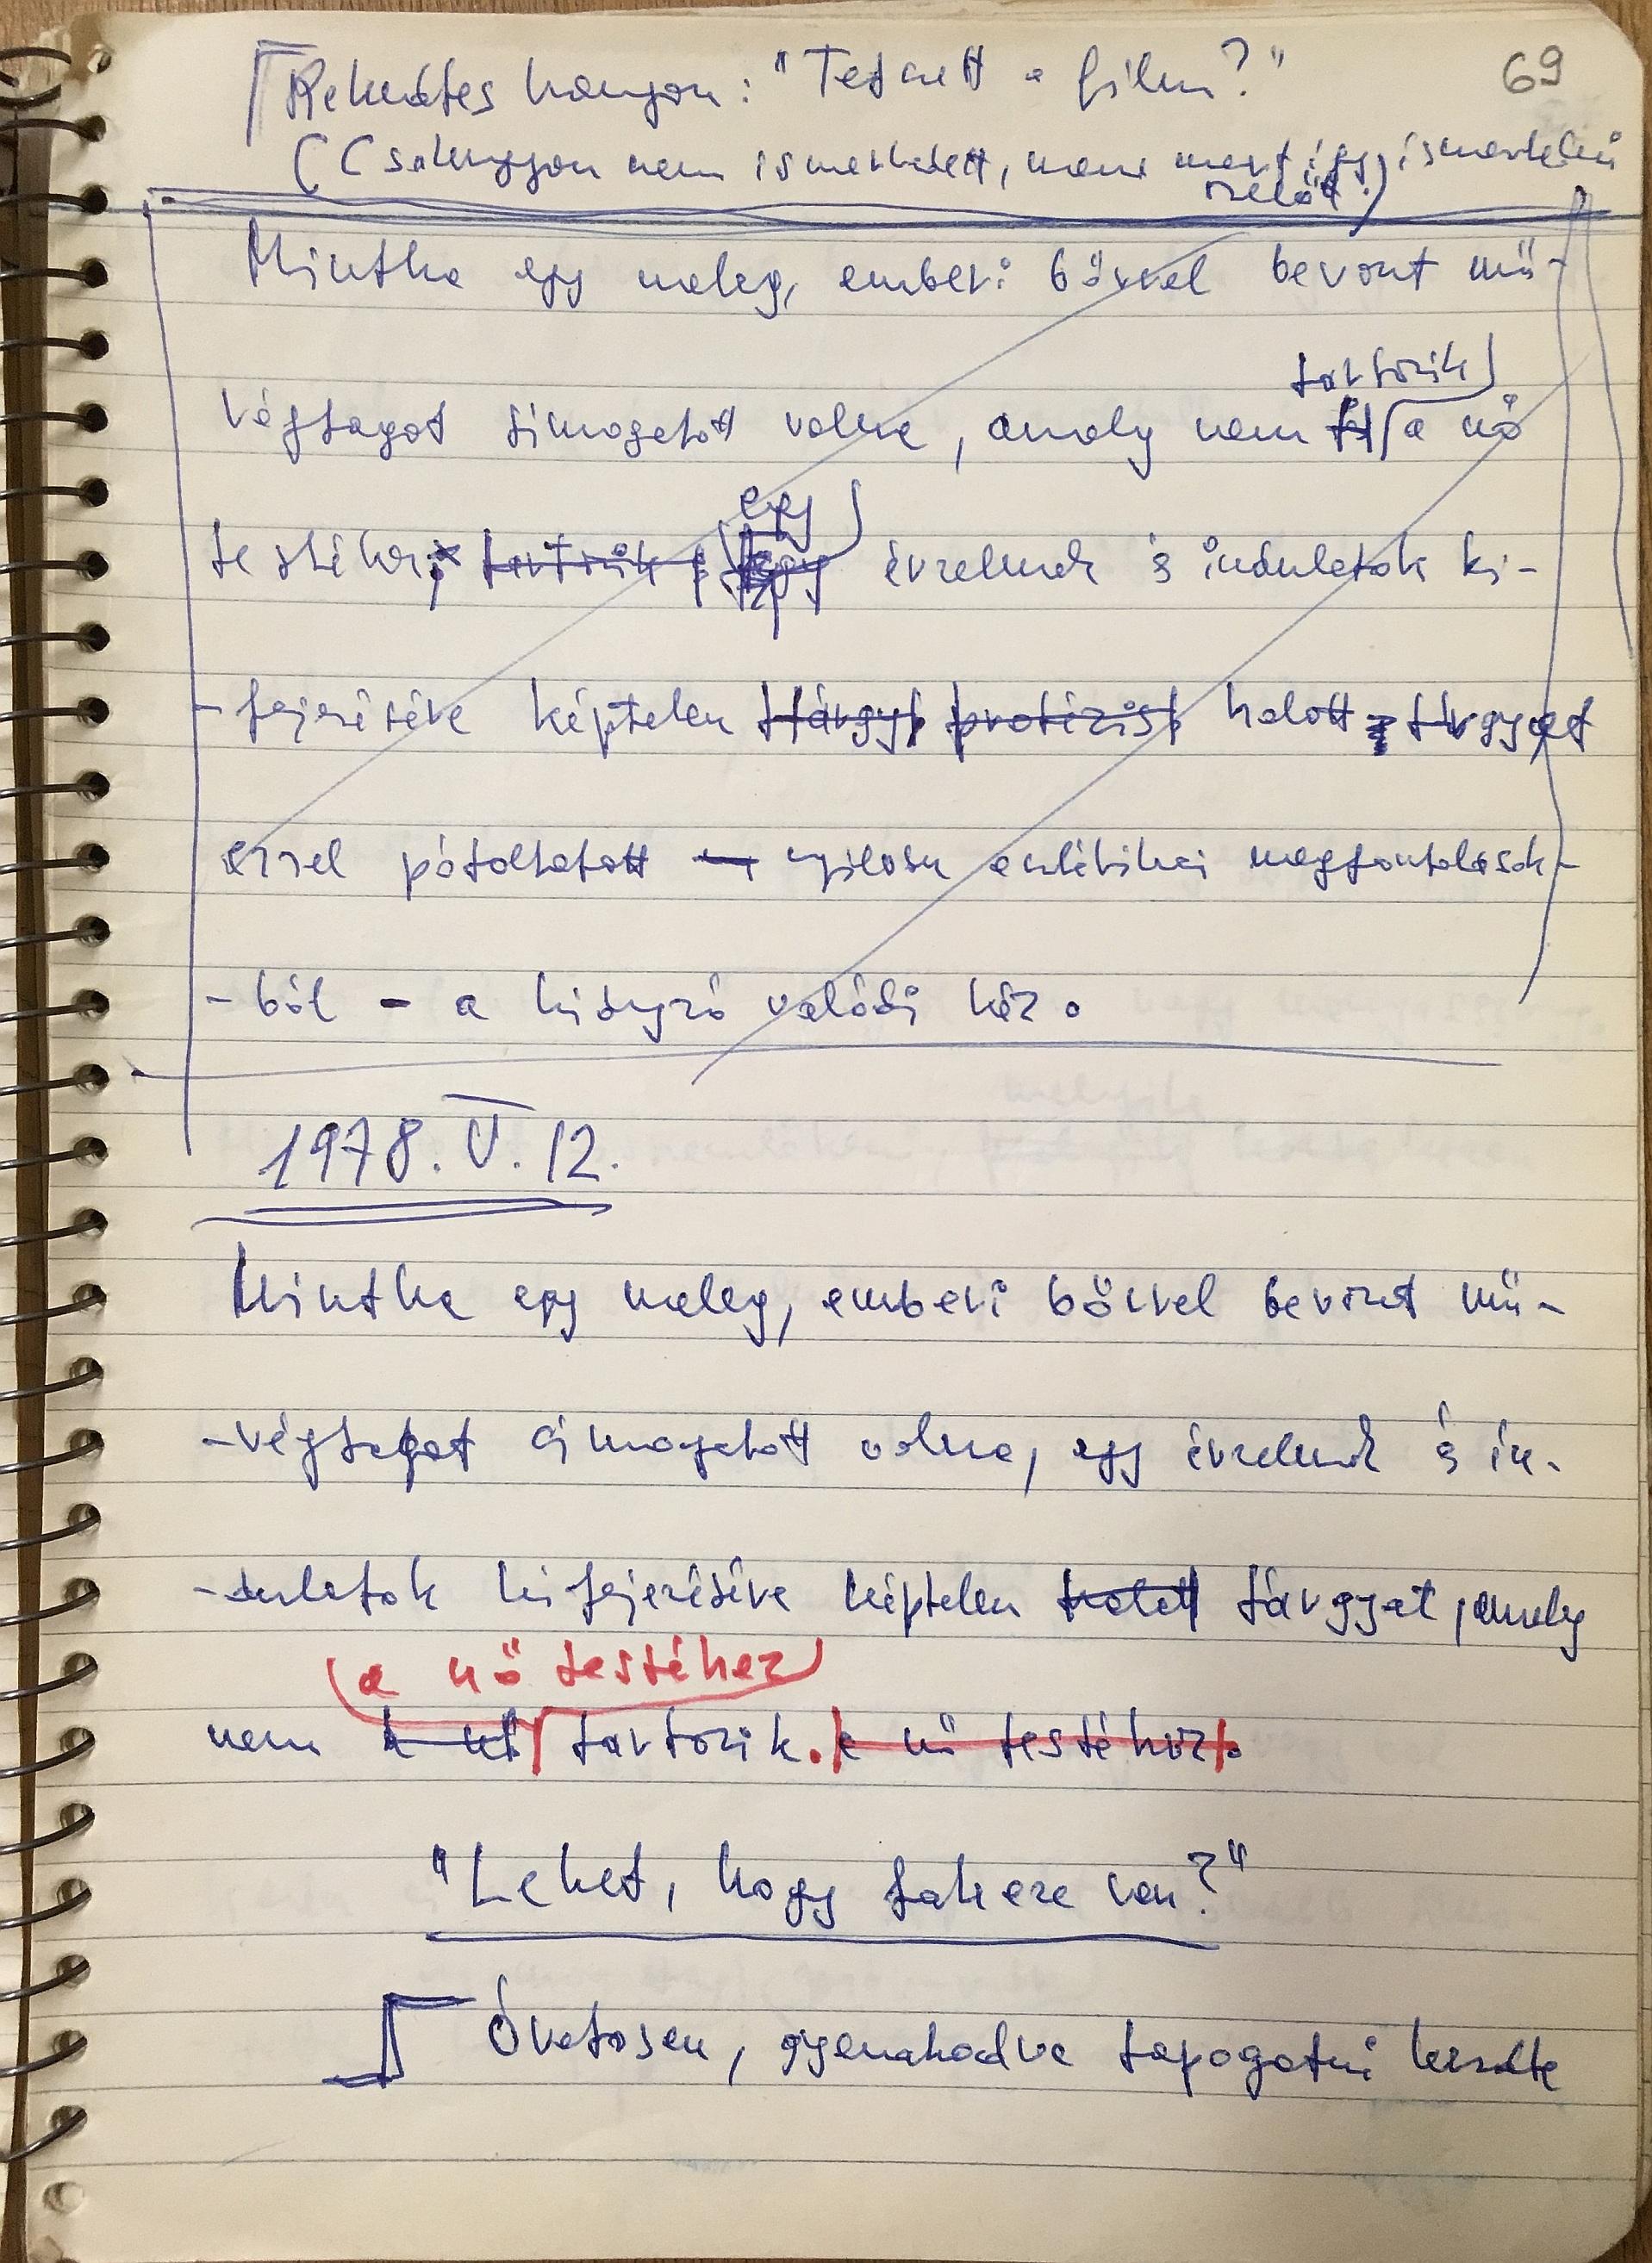 Rekedtes hangon: "Tetszett a film?" 69
(Csakugyan nem ismerkedett, mert így ismerkedni
szelőtt.)
Mintha egy meleg, emberi bőrrel bevont mű-
tartozik
végtagot simogatott volna, amely nem a nő
egy
testéhez, tartozik, érzelmek és indulatok ki-
-fejezésére képtelen tárgy, protézist halott tárgyat
ezzel pótoltatott nyilván esztétikai megfontolások-
-ból - a hiányzó valódi kéz.
1978. V. 12.
Mintha egy meleg, emberi bőrrel bevont mű-
-végtagot simogatott volna, egy érzelmek és in-
-dulatok kifejezésére képtelen halott tárgyat, amely
a nő testéhez
nem a nő tartozik. a nő testéhez.
"Lehet, hogy sakere van?"
Óvatosan, gyanakodva tapogatni kezdte